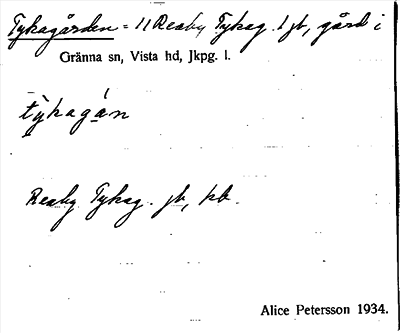 Tykagården = 11 Reaby Tykag. 1 jb, gård i
Gränna sn, Vista hd, Jkpg. l.
tỳkagán
Reaby Tykag. jb, kb.
Alice Petersson 1934.